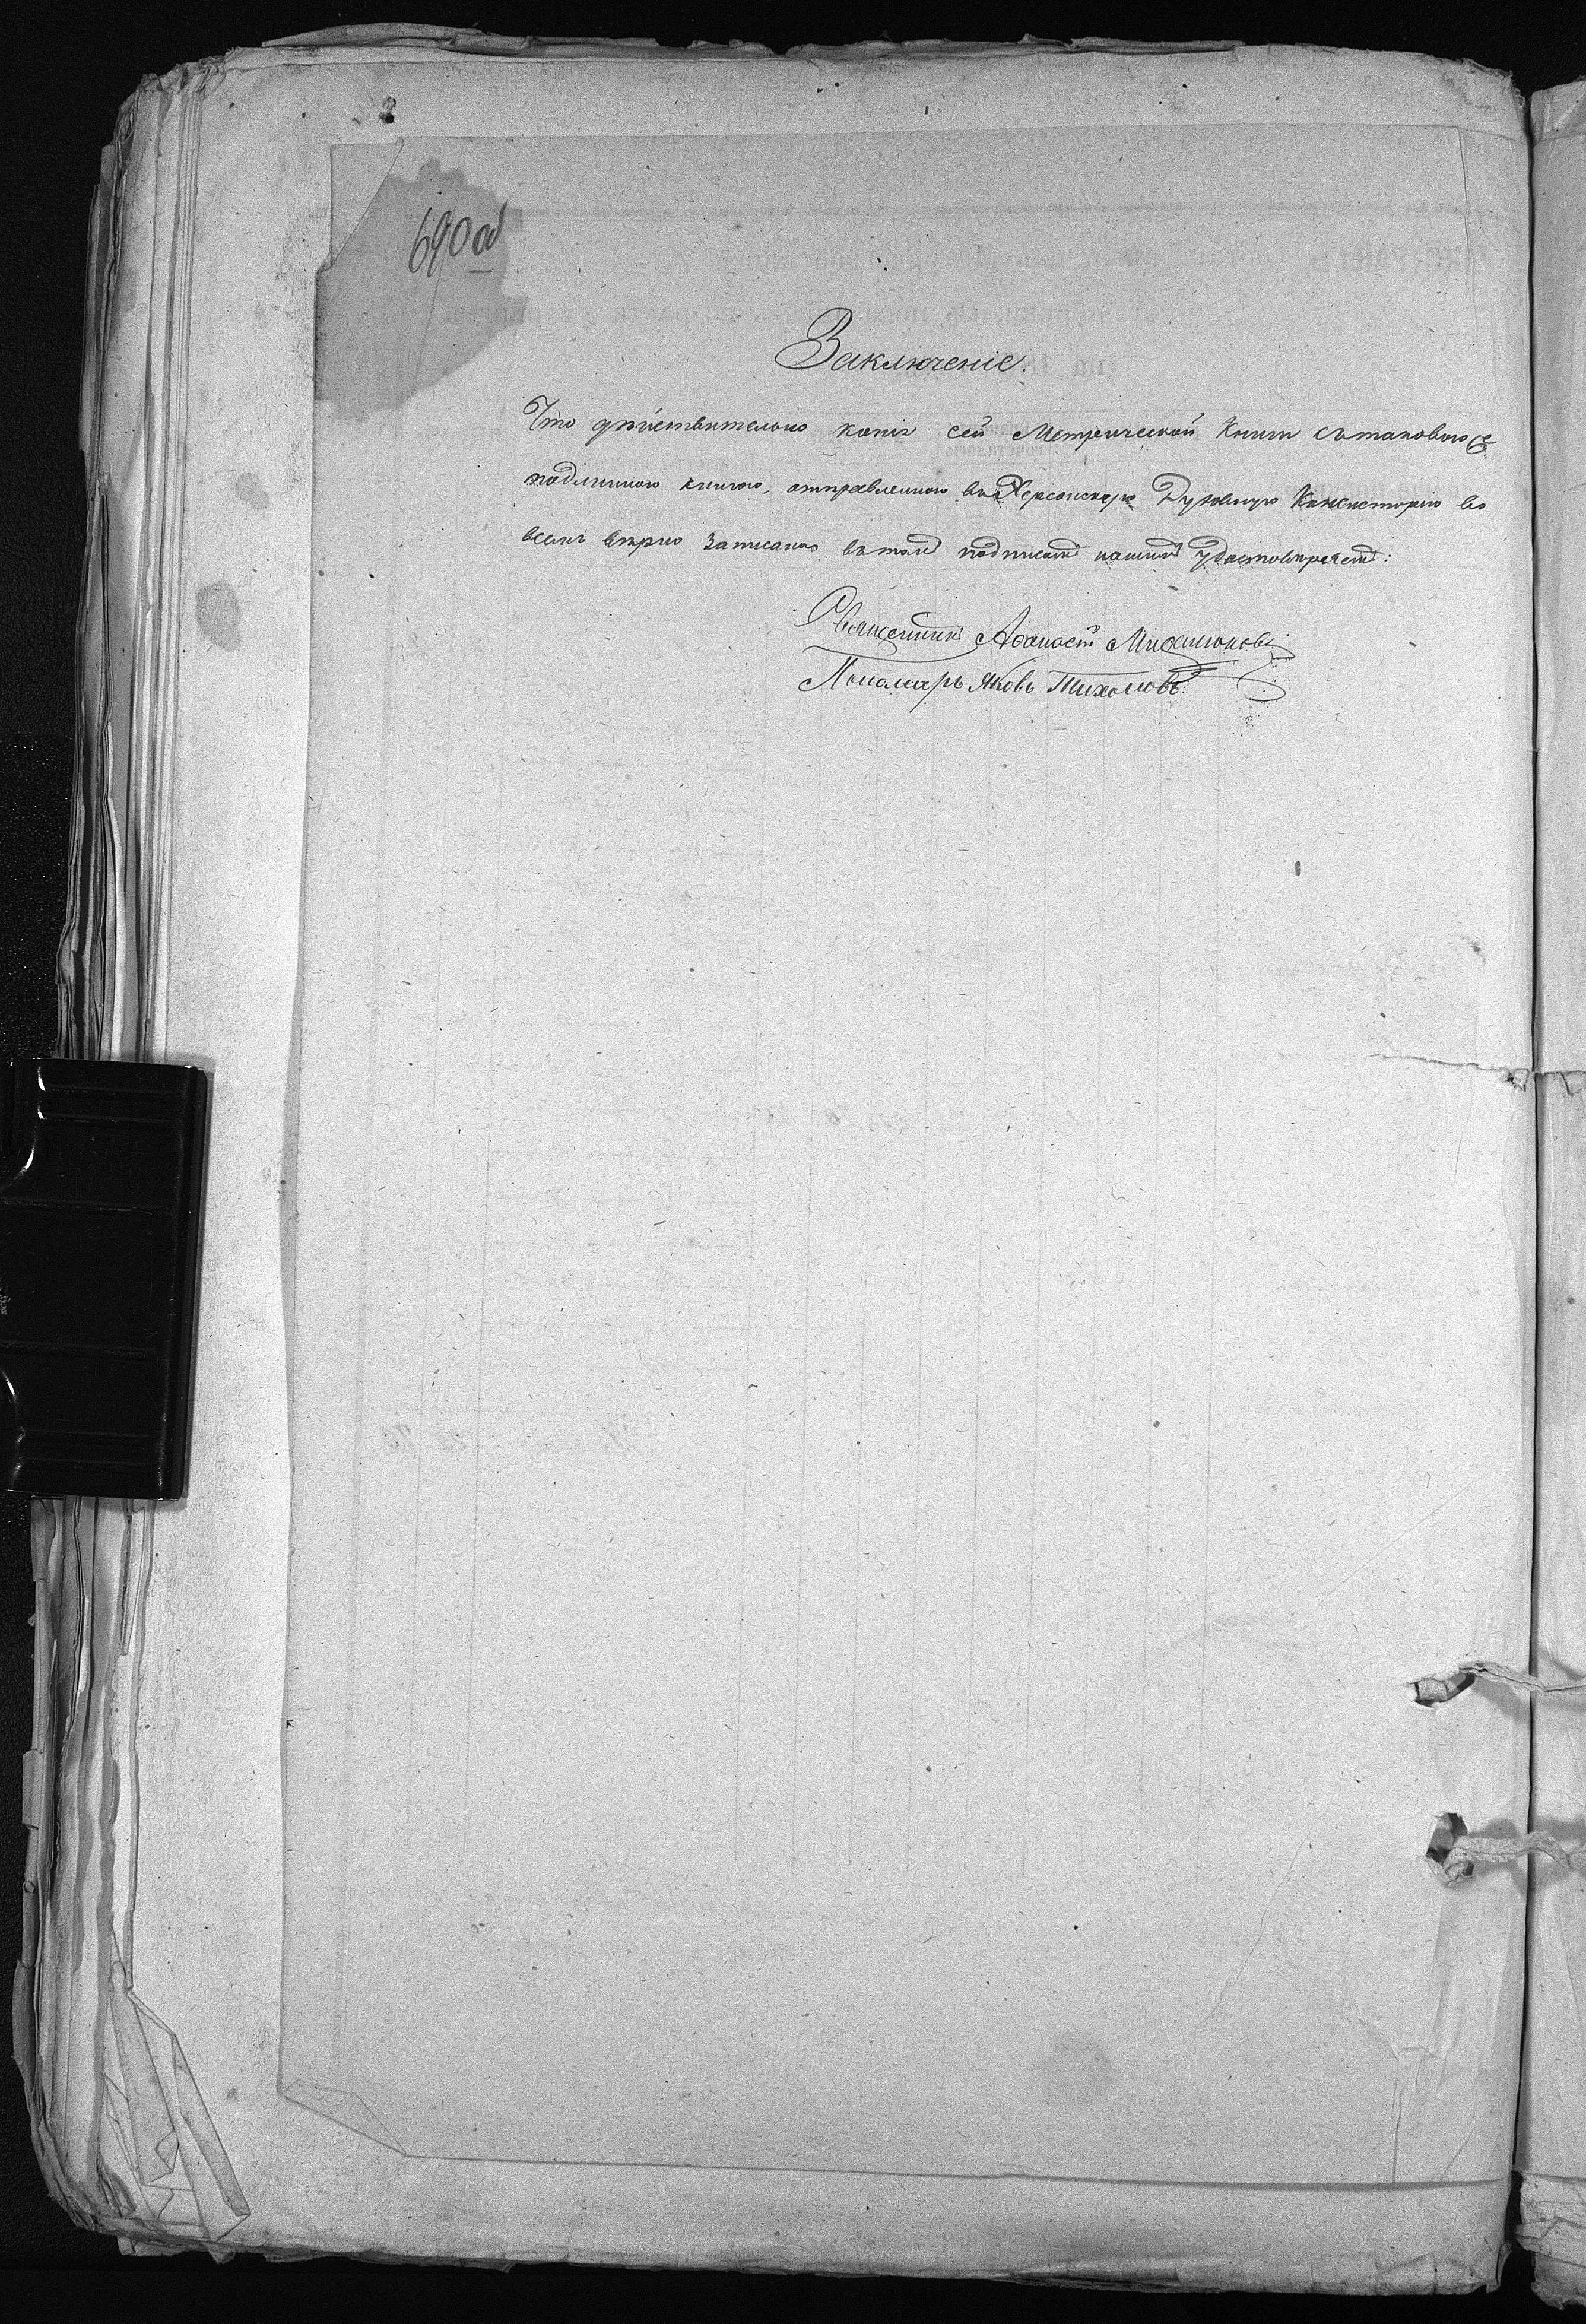 690 об
Заключеніе.
Что дѣйствительно копія сей Метрической Книги съ таковою же
подлинною книгою, отправленною въ Херсонскую Духовную Консисторію во
всемъ вѣрно записано въ томъ подписомъ нашимъ удостовѣряемъ:
Священникъ Аѳанасій
Пономарь Яковъ Тихоновъ